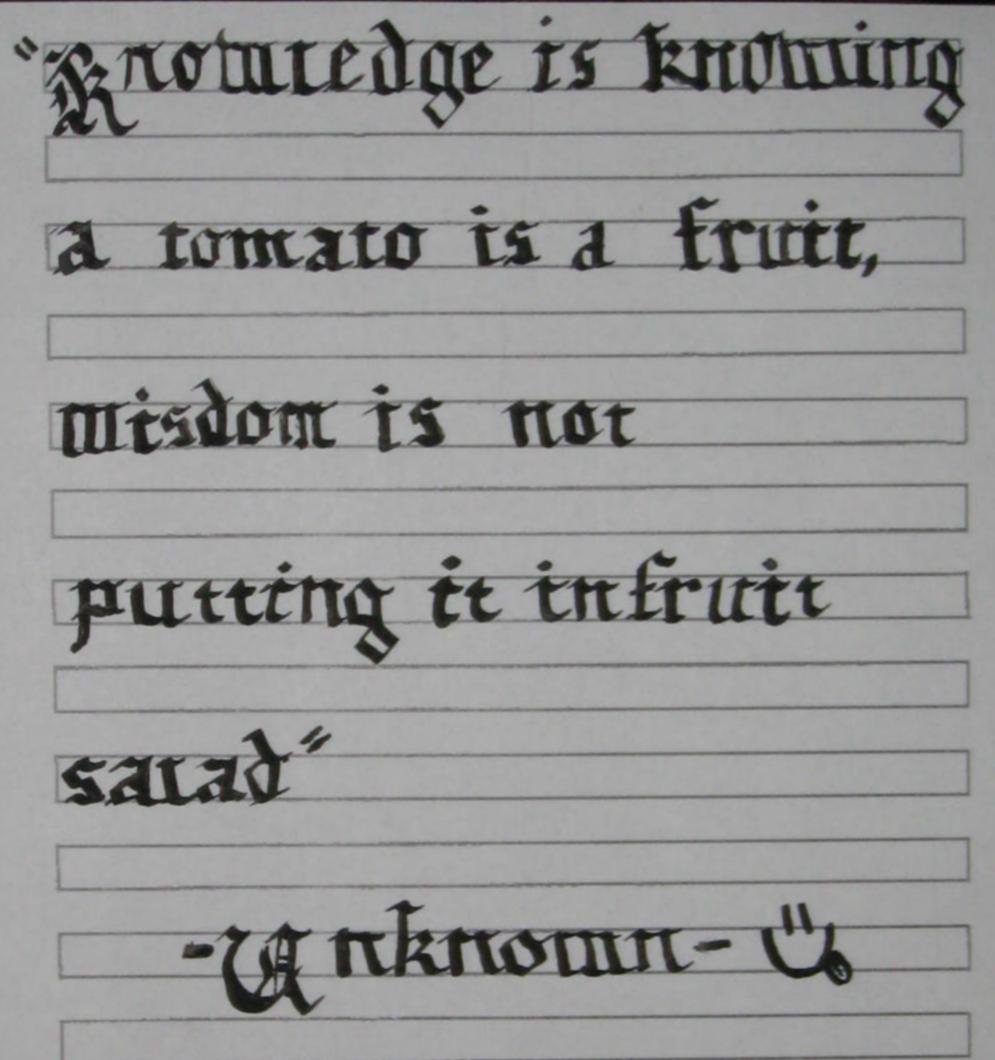 "Knowledge is knowing
a tomato is a fruit,
wisdom is not
putting it in fruit
salad"
-Unknown-